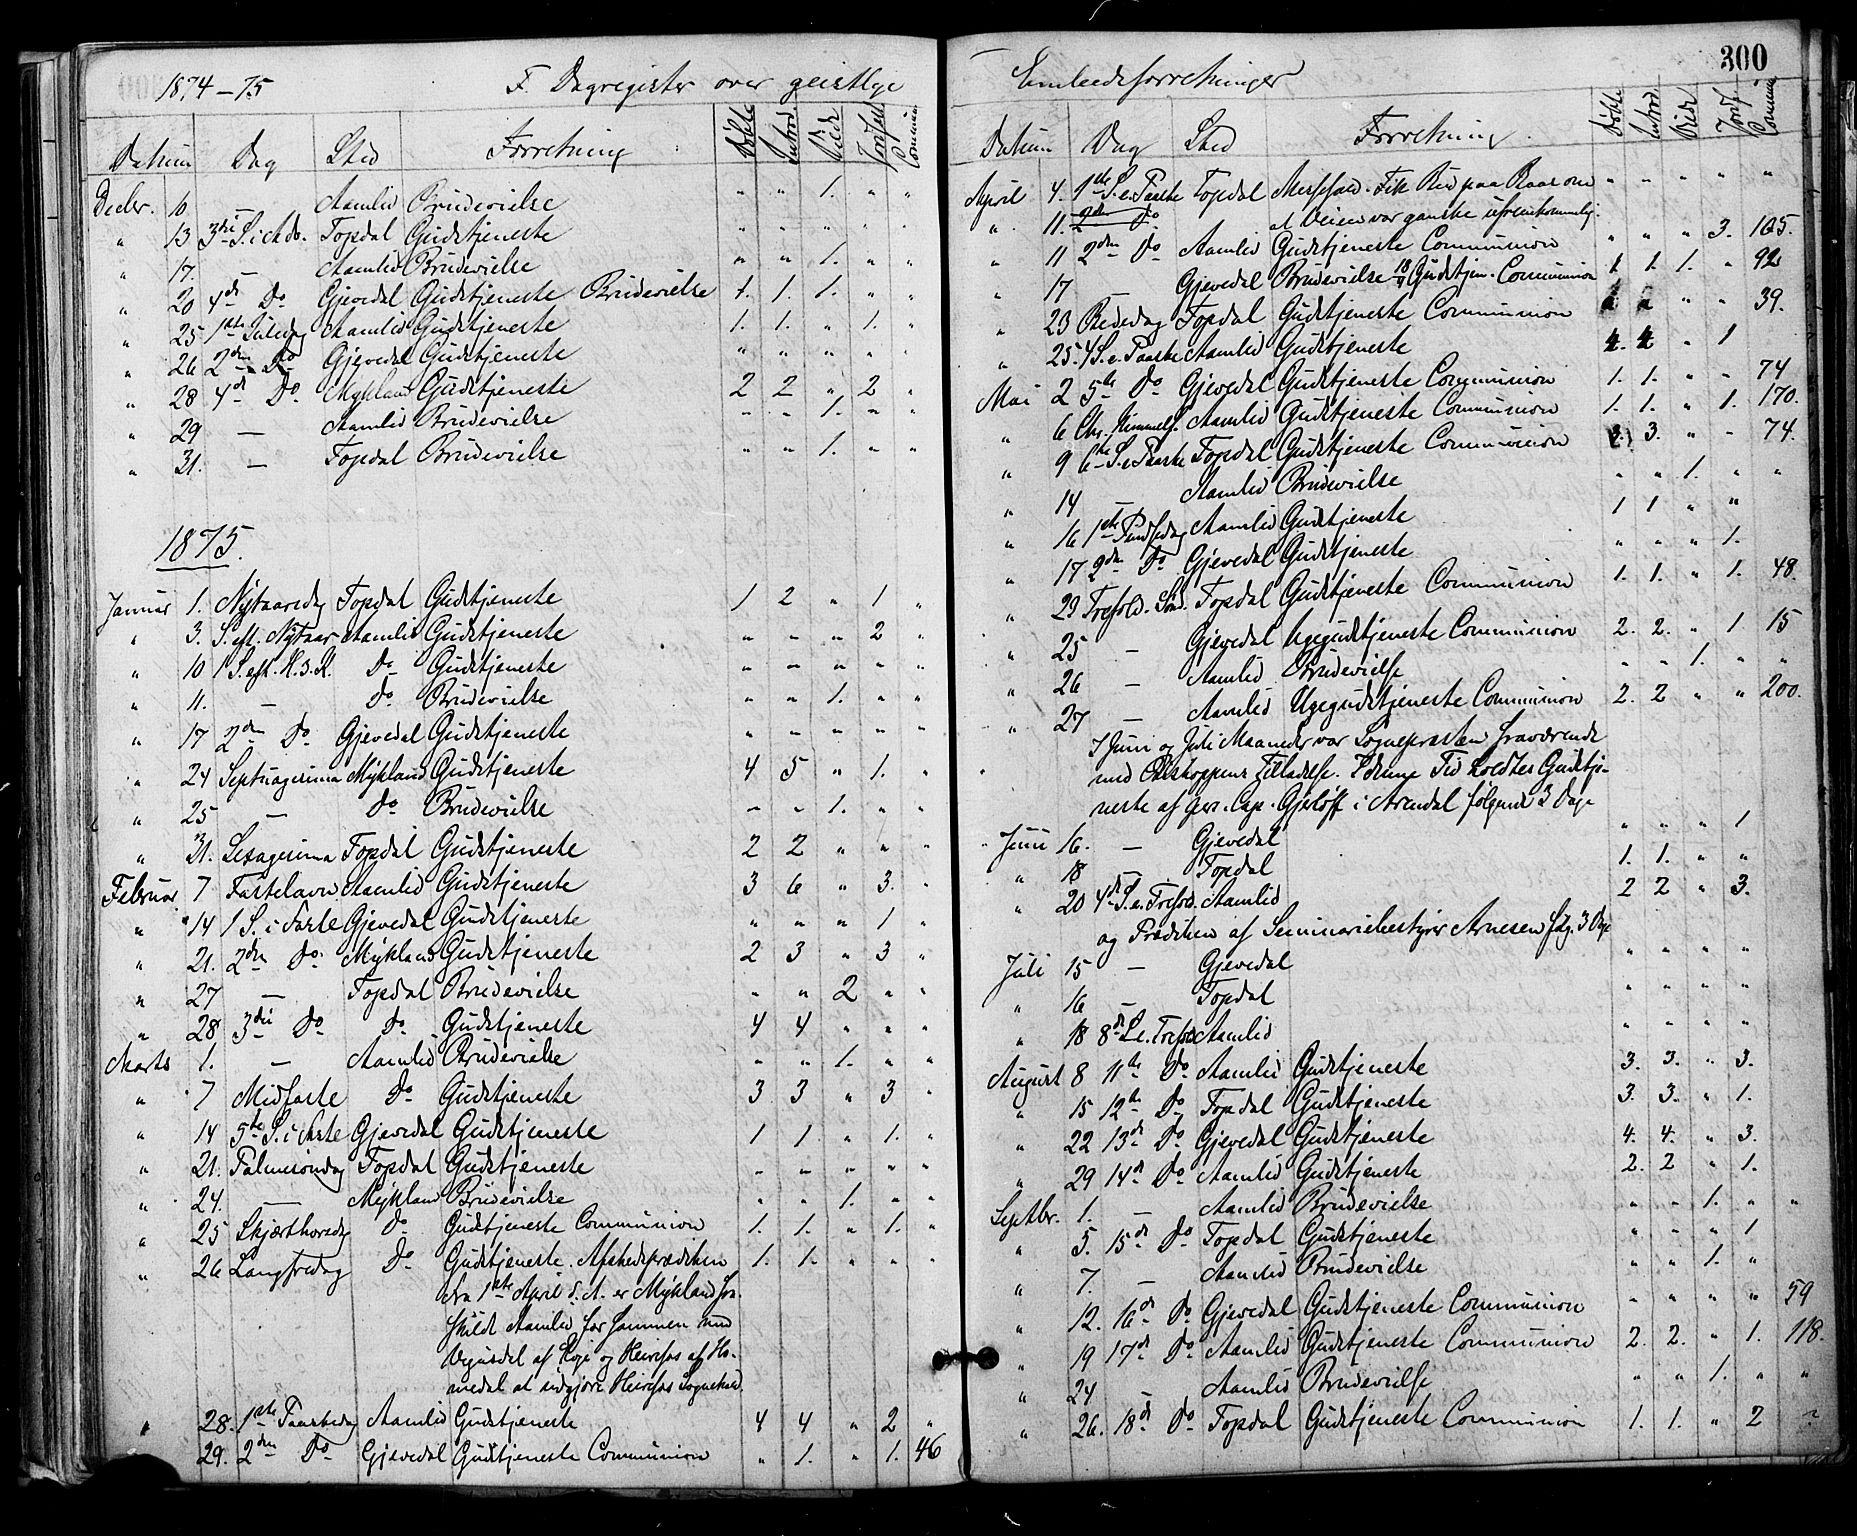 1874-75 F. Dagregister over geistlige
Datum Dag Sted Forretning Døbte Introd. Viede Jordf. Commun.
Decbr. 10 — Aamlid Brudevielse " " 1. " "
" 13 3die S. i Adv. Topdal Gudstjeneste " " " " "
" 17. — Aamlid Brudevielse " " 1. " "
" 20 4de Do Gjevedal Gudstjeneste Brudevielse 1. 1. 1. " "
" 25 1ste Juledag Aamlid Gudstjeneste 1. 1. " 1. "
" 26 2den Do Gjevedal Gudstjeneste " " " " "
" 28 4de Do Mykland Gudstjeneste 2 2 " 2 "
" 29 — Aamlid Brudevielse " " 1. " "
" 31. — Topdal Brudevielse " " 1. " "
1875.
Januar 1. Nytaarsdag Topdal Gudstjeneste 1 2 " 1 "
" 3. S. eft. Nytaar Aamlid Gudstjeneste " " " 2 "
" 10 1 S. eft. H. 3. K. Do Gudstjeneste " " " " "
" 11. — Do Brudevielse " " 1. " "
" 17 2den Do Gjevedal Gudstjeneste " " " " "
" 24 Septuagesima Mykland Gudstjeneste 4 5 " 1. "
" 25 — Do Brudevielse " " 1. " "
" 31. Sexagesima Topdal Gudstjeneste 2 2 " " "
Februar 7 Fastelavn Aamlid Gudstjeneste 3 6 " 3. "
" 14 1 S. i Faste Gjevedal Gudstjeneste " " " 1 "
" 21. 2den Do Mykland Gudstjeneste 2 3 " 3 "
" 27 — Topdal Brudevielse " " 2 " "
" 28 3die Do Do Gudstjeneste 4 4 " " "
Marts 1. — Aamlid Brudevielse " " 1. " "
" 7 Midfaste Do Gudstjeneste 3 3 " 3 "
" 14 5te S. i Faste Gjevedal Gudstjeneste 1 1 " 1. "
" 21. Palmesøndag Topdal Gudstjeneste " " " " "
" 24. — Mykland Brudevielse " " 1. " "
" 25 Skjærthorsdg Do Gudstjeneste Communion 1. 1. " 1. "
" 26 Langfredag Do Gudstjeneste. Afskedsprædiken 1. 1. " " "
fra 1ste April d. A. er Mykland fra
skildt Aamlid for sammen med
Vegusdal af Evje og Heirefos af Ho-
medal at udgjøre Heirefos Sognekald.
" 28. 1ste Paaskedag Aamlid Gudstjeneste 4 4 " 2 "
29. 2den Do Gjevedal Gudstjeneste Communion " 1. " 1. 46
300
Embedsforretninger
Datum Dag Sted Forretning Døbte Introd. Viede Jordf. Commun.
April 4. 1ste S. e. Paaske Topdal Messefald. Fik Bud paa Raas om " " " " "
" 11. 2den Do at Veien var ganske ufremkommelig.
" 11 2den Do Aamlid Gudstjeneste Communion " " " 3. 105.
" 17 — Gjevedal Brudevielse 18/4 Gudstjen. Communion 1. 1. 1. " 92
" 23 Bededag Topdal Gudstjeneste Communion " " 39.
" 25. 4 S. e. Paaske Aamlid Gudstjeneste 4. 4 " 1
Mai 2 5te Do Gjevedal Gudstjeneste Communion 1. 1. " " 74
" 6 Chr. Himmelf. Aamlid Gudstjeneste Communion 1. 1. " 1. 170.
" 9 6te S. e. Paaske Topdal Gudstjeneste Communion 3. 3. " " 74.
" 14 — Aamlid Brudevielse " " 1. " "
" 16 1ste Pindsedag Aamlid Gudstjeneste 1 1 " "
" 17 2den Do Gjevedal Gudstjeneste " " " 1.
" 23 Trefold. Sønd. Topdal Gudstjeneste Communion 1. 1. " 1. 48.
" 25 — Gjevedal Ugegudstjeneste Communion 2. 2. " 1 15
" 26 — Aamlid Brudevielse " " 1. " "
" 27 — Aamlid Ugegudstjeneste Communion 2. 2 " " 200.
I Juni og Juli Maaneder var Sognepræsten fraværende
med Biskoppens Tilladelse. I denne Tid holdtes Gudstje-
neste af pers. Cap. Gjerløff i Arendal følgende 3 Dage
Juni 16. — Gjevedal " " " 1
" 18 — Topdal 1. 1. " "
" 20 4de S. e. Trefold. Aamlid 2 2 " 3.
og Prædiken af Seminariebestyrer Arnesen følg. 3 Dage
Juli 15 — Gjevedal " " " "
" 16 — Topdal " " " "
" 18 8de S. e. Trefold. Aamlid " " " "
August 8 11te Do Aamlid Gudstjeneste 3. 3. " 3.
" 15 12te Do Topdal Gudstjeneste 3. 3. " 1.
" 22 13de Do Gjevedal Gudstjeneste 4. 4. " 3.
" 29 14de Do Aamlid Gudstjeneste 2. 2 " 1.
Septbr. 1. — Aamlid Brudevielse " " 1. " "
" 5. 15de Do Topdal Gudstjeneste " " " 1
" 7. — Aamlid Brudevielse " " 1. "
" 12. 16de Do Gjevedal Gudstjeneste Communion " " " " 59
" 19 17de Do Aamlid Gudstjeneste Communion 2. 2. " 1. 118.
" 24 — Aamlid Brudevielse " " 1. " "
" 26. 18de Do Topdal Gudstjeneste Communion 1. 1. " 2 ?